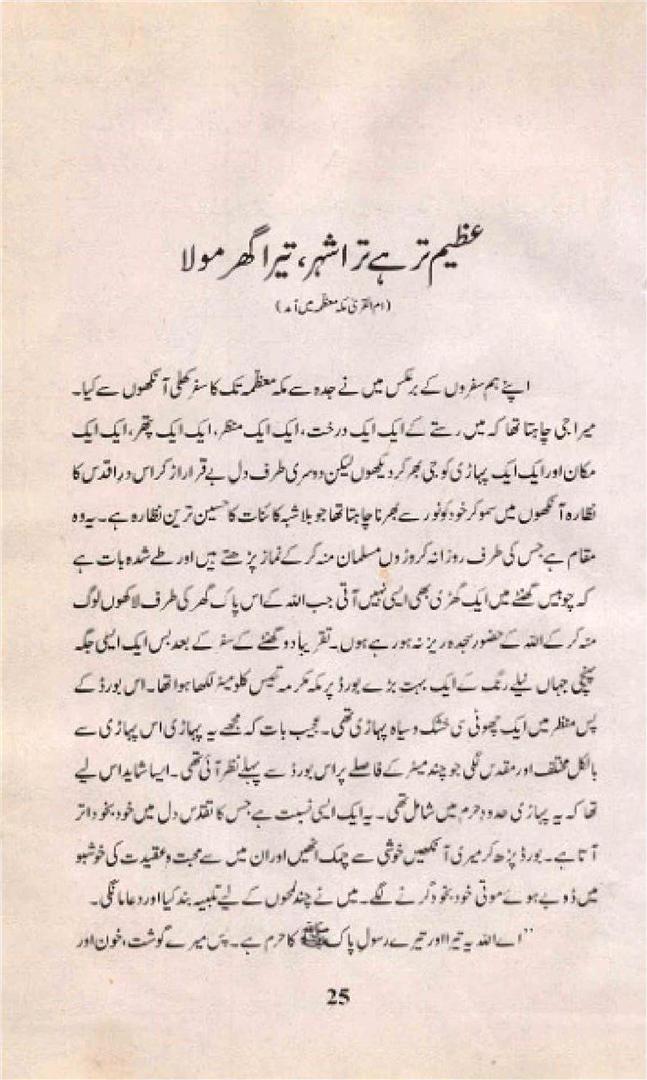 عظیم تر ہے ترا شہر، تیرا گھر مولا
(ام القریٰ مکہ معظمہ میں آمد)
اپنے ہم سفروں کے برعکس میں نے جدہ سے مکہ معظمہ تک کا سفر کھلی آنکھوں سے کیا۔
میرا جی چاہتا تھا کہ میں رستے کے ایک ایک درخت، ایک ایک منظر، ایک ایک پتھر، ایک ایک
مکان اور ایک ایک پہاڑی کو جی بھر کر دیکھوں لیکن دوسری طرف دل بے قرار اڑ کر اس در اقدس کا
نظارہ آنکھوں میں سمو کر خود کو نور سے بھرنا چاہتا تھا جو بلاشبہ کائنات کا حسین ترین نظارہ ہے۔ یہ وہ
مقام ہے جس کی طرف روزانہ کروڑوں مسلمان منہ کر کے نماز پڑھتے ہیں اور طے شدہ بات ہے
کہ چوبیس گھنٹے میں ایک گھڑی بھی ایسی نہیں آتی جب اللہ کے اس پاک گھر کی طرف لاکھوں لوگ
منہ کر کے اللہ کے حضور سجدہ ریز نہ ہو رہے ہوں۔ تقریباً دو گھنٹے کے سفر کے بعد بس ایک ایسی جگہ
پہنچی جہاں نیلے رنگ کے ایک بہت بڑے بورڈ پر مکہ مکرمہ تیس کلومیٹر لکھا ہوا تھا۔ اس بورڈ کے
پس منظر میں ایک چھوٹی سی خشک و سیاہ پہاڑی تھی۔ عجیب بات کہ مجھے یہ پہاڑی اس پہاڑی سے
بالکل مختلف اور مقدس لگی جو چند میٹر کے فاصلے پر اس بورڈ سے پہلے نظر آئی تھی۔ ایسا شاید اس لیے
تھا کہ یہ پہاڑی حدود حرم میں شامل تھی۔ یہ ایک ایسی نسبت ہے جس کا تقدس دل میں خود بخود اتر
آتا ہے۔ بورڈ پڑھ کر میری آنکھیں خوشی سے چمک اٹھیں اور ان میں سے محبت و عقیدت کی خوشبو
میں ڈوبے ہوئے موتی خود بخود گرنے لگے۔ میں نے چند لمحوں کے لیے تلبیہ بند کیا اور دعا مانگی۔
"اے اللہ یہ تیرا اور تیرے رسول پاک ﷺ کا حرم ہے۔ پس میرے گوشت، خون اور
25